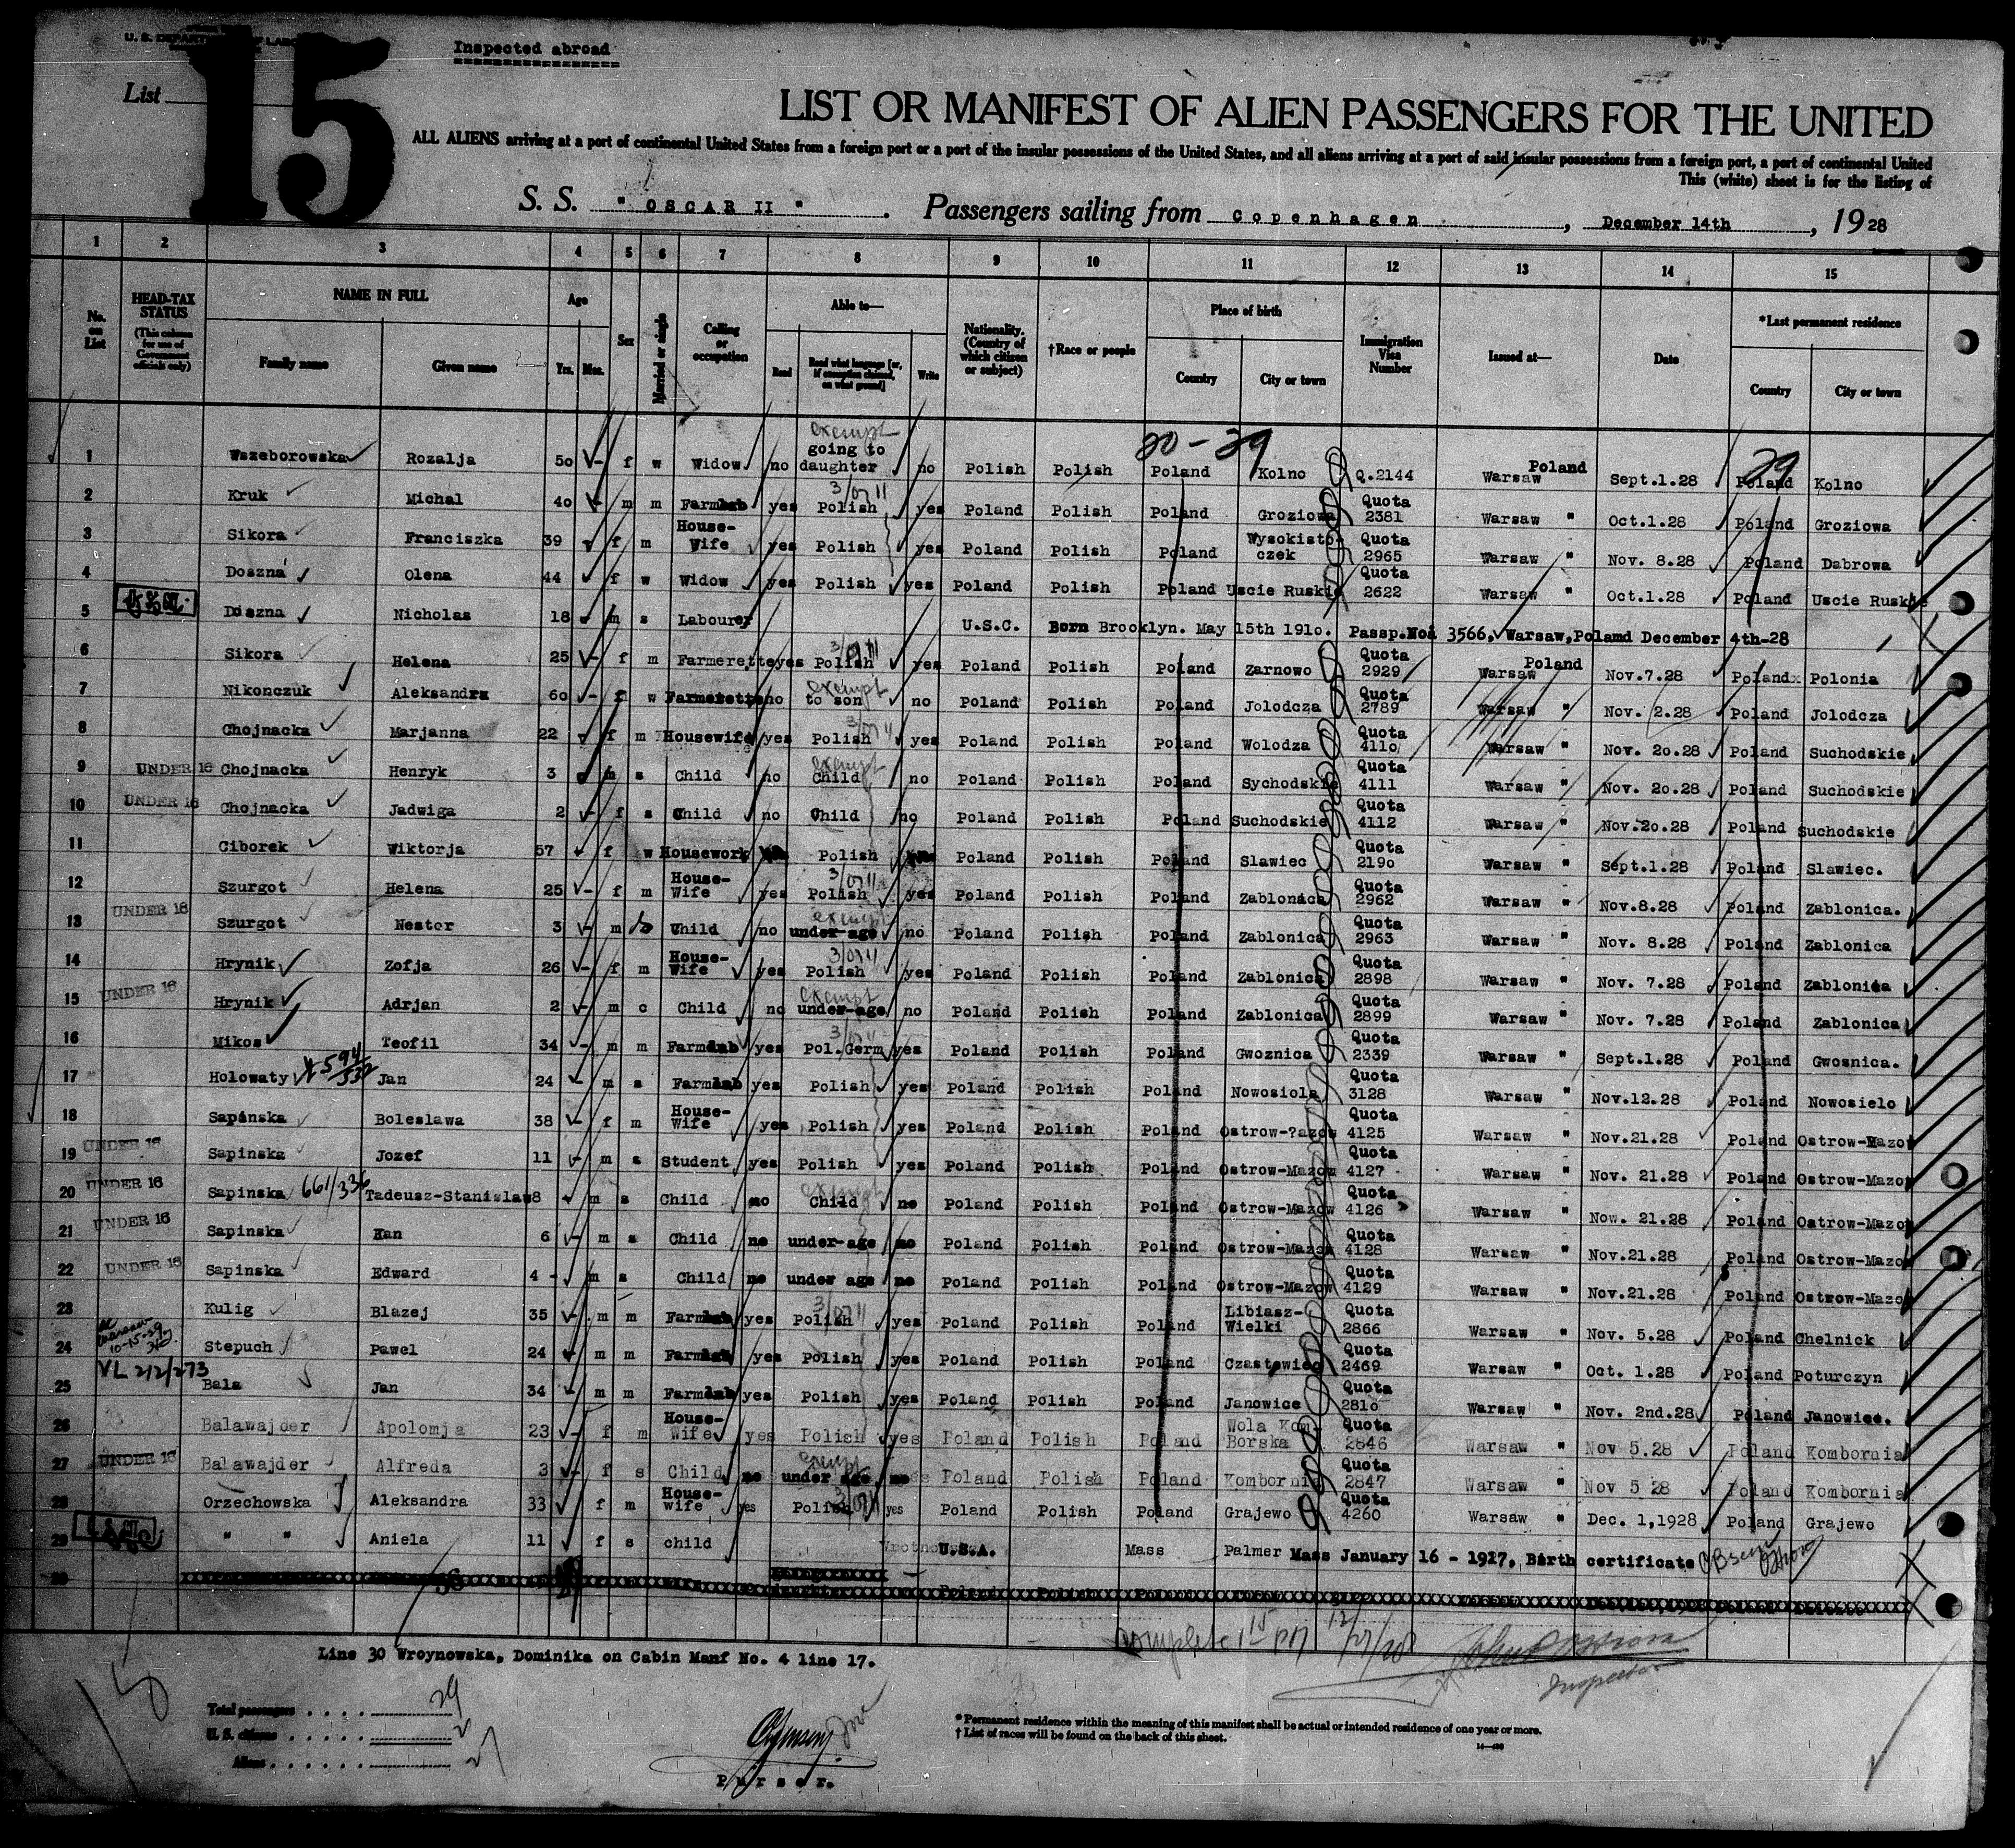 U. S. DEPARTMENT OF LABOR
Inspected abroad
List 15
LIST OR MANIFEST OF ALIEN PASSENGERS FOR THE UNITED
ALL ALIENS arriving at a port of continental United States from a foreign port or a port of the insular possessions of the United States, and all aliens arriving at a port of said insular possessions from a foreign port, a port of continental United
This (white) sheet is for the listing of
S. S. " OSCAR II " . Passengers sailing from Copenhagen , December 14th , 1928
1 2 3 4 5 6 7 8 9 10 11 12 13 14 15
No. on List HEAD-TAX STATUS (This column for use of Government officials only) NAME IN FULL Family name Given name Age Yrs. Mos. Sex Married or single Calling or occupation Able to— Read Read what language [or, if exemption claimed, on what ground] Write Nationality. (Country of which citizen or subject) †Race or people Place of birth Country City or town Immigration Visa Number Issued at— Date *Last permanent residence Country City or town
20-29 29
1 Wszeborowska Rozalja 50 f w Widow no exempt going to daughter no Polish Polish Poland Kolno Q.2144 Warsaw Poland Sept.1.28 Poland Kolno
2 Kruk Michal 40 m m Farmlab yes Polish yes Poland Polish Poland Groziowa Quota 2381 Warsaw " Oct.1.28 Poland Groziowa
3 Sikora Franciszka 39 f m House-Wife yes Polish yes Poland Polish Poland Wysokisto czek Quota 2965 Warsaw " Nov. 8.28 Poland Dabrowa
4 Doszna Olena 44 f w Widow yes Polish yes Poland Polish Poland Uscie Ruskie Quota 2622 Warsaw " Oct.1.28 Poland Uscie Ruskie
5 Doszna Nicholas 18 m s Labourer U.S.C. Born Brooklyn. May 15th 1910. Passp.No. 3566, Warsaw,Poland December 4th-28
6 Sikora Helena 25 f m Farmerette yes Polish yes Poland Polish Poland Zarnowo Quota 2929 Warsaw Poland Nov.7.28 Poland Polonia
7 Nikonczuk Aleksandra 60 f w Farmerette no exempt to son no Poland Polish Poland Jolodcza Quota 2789 Warsaw " Nov. 2.28 Poland Jolodcza
8 Chojnacka Marjanna 22 f m Housewife yes Polish yes Poland Polish Poland Wolodza Quota 4110 Warsaw " Nov. 20.28 Poland Suchodskie
9 UNDER 16 Chojnacka Henryk 3 m s Child no exempt Child no Poland Polish Poland Sychodskie Quota 4111 Warsaw " Nov. 20.28 Poland Suchodskie
10 UNDER 16 Chojnacka Jadwiga 2 f s Child no Child no Poland Polish Poland Suchodskie Quota 4112 Warsaw " Nov.20.28 Poland Suchodskie
11 Ciborek Wiktorja 57 f w Housework Polish Poland Polish Poland Slawiec Quota 2190 Warsaw " Sept.1.28 Poland Slawiec.
12 Szurgot Helena 25 f m House-Wife yes Polish yes Poland Polish Poland Zablonica Quota 2962 Warsaw " Nov.8.28 Poland Zablonica.
13 UNDER 16 Szurgot Nestor 3 m s Child no exempt under-age no Poland Polish Poland Zablonica Quota 2963 Warsaw " Nov. 8.28 Poland Zablonica
14 Hrynik Zofja 26 f m House-Wife yes Polish yes Poland Polish Poland Zablonica Quota 2898 Warsaw " Nov. 7.28 Poland Zablonica
15 UNDER 16 Hrynik Adrjan 2 m c Child no exempt under-age no Poland Polish Poland Zablonica Quota 2899 Warsaw " Nov. 7.28 Poland Zablonica
16 Mikos Teofil 34 m m Farmlab yes Pol.Germ yes Poland Polish Poland Gwoznica Quota 2339 Warsaw " Sept.1.28 Poland Gwosnica.
17 Holowaty Jan 24 m s Farmlab yes Polish yes Poland Polish Poland Nowosiola Quota 3128 Warsaw " Nov.12.28 Poland Nowosielo
18 Sapinska Boleslawa 38 f m House-Wife yes Polish yes Poland Polish Poland Ostrow-?azow Quota 4125 Warsaw " Nov.21.28 Poland Ostrow-Mazow
19 UNDER 16 Sapinska Jozef 11 m s Student yes Polish yes Poland Polish Poland Ostrow-Mazow Quota 4127 Warsaw " Nov. 21.28 Poland Ostrow-Mazow
20 UNDER 16 Sapinska 661/336 Tadeusz-Stanislaw 8 m s Child no exempt Child no Poland Polish Poland Ostrow-Mazow Quota 4126 Warsaw " Now. 21.28 Poland Ostrow-Mazow
21 UNDER 16 Sapinska Han 6 m s Child no under-age no Poland Polish Poland Ostrow-Mazow Quota 4128 Warsaw " Nov.21.28 Poland Ostrow-Mazow
22 UNDER 16 Sapinska Edward 4 - m s Child no under age no Poland Polish Poland Ostrow-Mazow Quota 4129 Warsaw " Nov.21.28 Poland Ostrow-Mazow
23 Kulig Blazej 35 m m Farmlab yes Polish yes Poland Polish Poland Libiasz-Wielki Quota 2866 Warsaw " Nov. 5.28 Poland Chelnick
24 Stepuch Pawel 24 m m Farmlab yes Polish yes Poland Polish Poland Czastowiec Quota 2469 Warsaw " Oct. 1.28 Poland Poturczyn
VL 212/273
25 Bala Jan 34 m m Farmlab yes Polish yes Poland Polish Poland Janowice Quota 2810 Warsaw " Nov. 2nd.28 Poland Janowiec.
26 Balawajder Apolomja 23 f m House-Wife yes Polish yes Poland Polish Poland Wola Kom Borska Quota 2846 Warsaw " Nov 5.28 Poland Kombornia
27 UNDER 16 Balawajder Alfreda 3 f s Child no exempt under age no Poland Polish Poland Komborni Quota 2847 Warsaw " Nov 5 28 Poland Kombornia
28 Orzechowska Aleksandra 33 f m House-wife yes Polish yes Poland Polish Poland Grajewo Quota 4260 Warsaw " Dec. 1,1928 Poland Grajewo
29 " " Aniela 11 f s child U.S.A. Mass Palmer Mass January 16 - 1917, Birth certificate
30
Complete 1 15 PM 12/27/28
Inspector
Line 30 Wroynowska, Dominika on Cabin Manf No. 4 line 17.
Total passengers . . . . 29
U. S. citizens . . . . . 2
Aliens . . . . . . 27
Purser.
* Permanent residence within the meaning of this manifest shall be actual or intended residence of one year or more.
† List of races will be found on the back of this sheet.